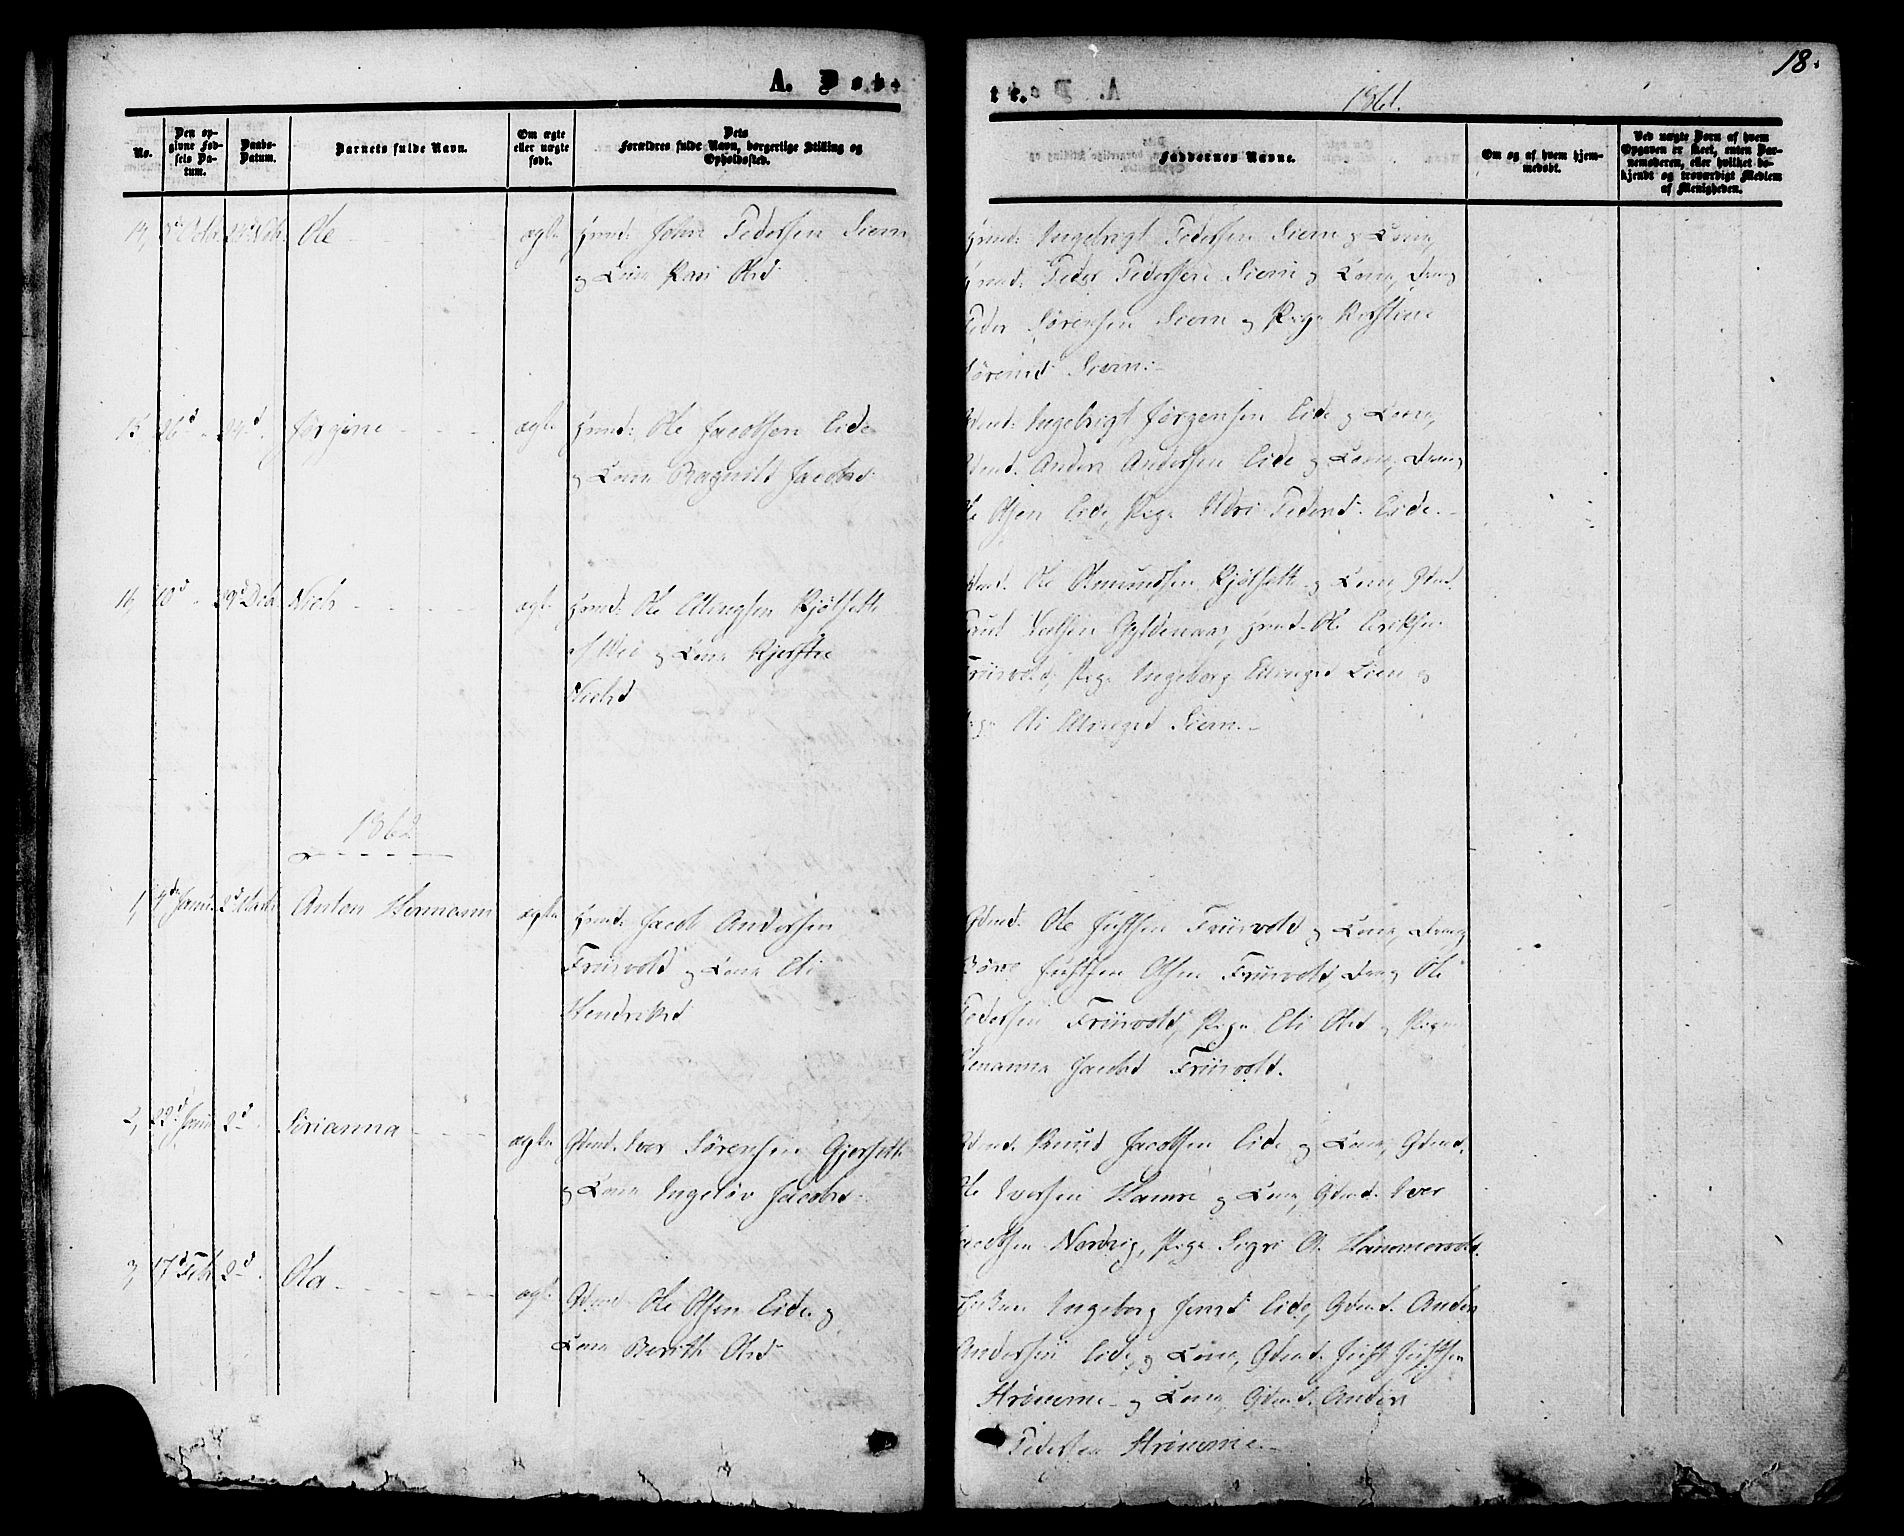 18.
A. Døbte.
1861.
No.
Den opgivne Fødsels Datum.
Daabs-Datum.
Barnets fulde Navn.
Om ægte eller uægte født.
Dets Forældres fulde Navn, borgerlige Stilling og Opholdssted.
Faddernes Navne.
Om og af hvem hjemmedøbt.
Ved uægte Børn af hvem Opgaven er skeet, enten Barnemoderen, eller hvilket bekjendt og troværdigt Medlem af Menigheden.
14, Ole ægte John Pedersen Siem
og Kone Kari Olsd
Ingebrigt Pedersen Siem og Kone,
Peder Pedersen Siem og Kone, Dreng
Peder Sørensen Siem og Pige Kirstine
Siem.
15 26d 24d Jørgine ægte Ole Jacobsen Eide
og Kone Ragnild Jacobsd
Ingebrigt Jørgensen Eide og Kone,
Anders Andersen Eide og Kone, Dreng
Ole Olsen Eide, Pige Pedersd. Eide.
16, 10d 29d Niels ægte Ole Ellingsen Kjölseth
og Kone Kjerstie
Nielsd
Gdmd. Ole Osmundsen Kjölseth og Kone, Gdmd.
Knut Nielsen Gyldenaas, Ole Eriksen
Friisvold, Pige Ingeborg Ellingsd Lien og
Pige Eli Ellingsd Siem.
1862
1, 4d Janu. 2d Marts Anton Hermann ægte Jacob Andersen
Friisvold og Kone Eli
Hendriksd
Gdmd. Ole Justsen Friisvold og Kone, Dreng
Justsen Olsen Friisvold, Dreng Ole
Pedersen Friisvold, Pige Eli Olsd og Pige
Jacobsd Friisvold.
2, 22d Janu 2d Sirianna ægte Gdmd. Iver Sørensen Gjerseth
og Kone Ingeløv Jacobsd.
Gdmd. Knud Jacobsen Eide og Kone, Gdmd.
Ole Iversen Hamre og Kone, Gdmd. Iver
Jacobsen Nordvig, Pige Sigri O. Hammervold.
3, 17d Febr. 2d Ola ægte Gdmd. Ole Olsen Eide og
Kone Berith Olsd
Ingeborg Jonsd Eide, Gdmd. Anders
Andersen Eide og Kone, Gdmd. Just Justsen
Strömme og Kone, Gdmd. Anders
Pedersen Strömme.